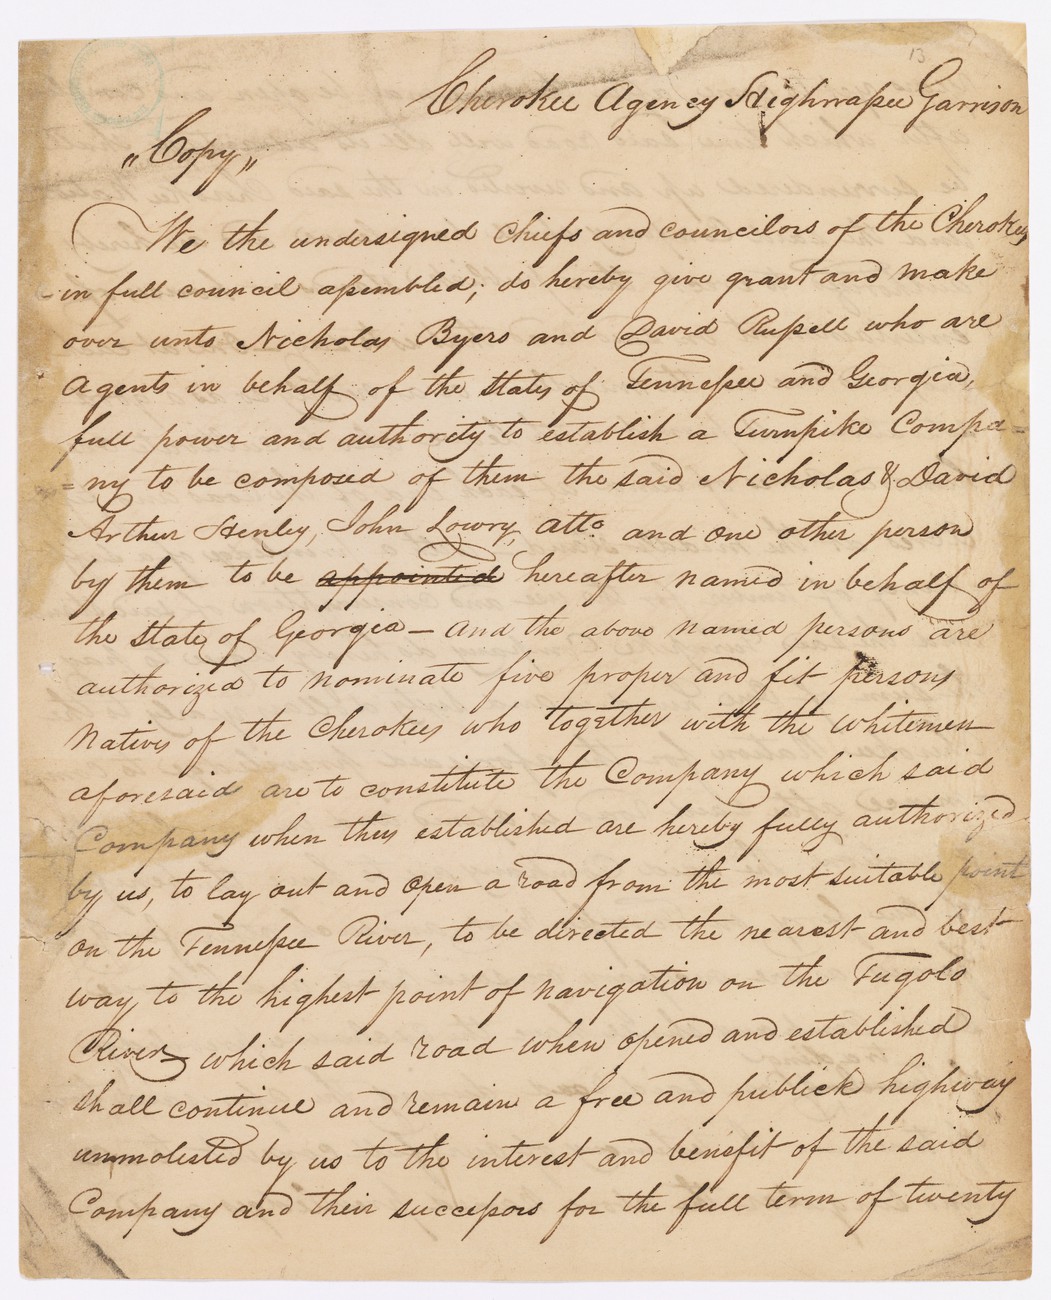 13
Cherokee Agency Highwassee Garrison
„Copy„
We the undersigned Chiefs and councilors of the Cherokees
in full council assembled; do hereby give grant and make
over unto Nicholas Byers and David Russell who are
Agents in behalf of the States of Tennessee and Georgia,
full power and authority to establish a Turnpike Compa=
=ny to be composed of them the said Nicholas & David
Arthur Henley, John Lowry, atto and one other person
by them to be appointed hereafter named in behalf of
the State of Georgia — And the above named persons are
authorized to nominate five proper and fit persons
Natives of the Cherokees who together with the Whitemen
aforesaid are to constitute the Company which said
Company when thus established are hereby fully authorized
by us, to lay out and open a road from the most suitable point
on the Tennessee River, to be directed the nearest and best
way to the highest point of navigation on the Tugolo
River which said road when opened and established
shall continue and remain a free and publick highway
unmolested by us to the interest and benefit of the said
Company and their successors for the full term of twenty